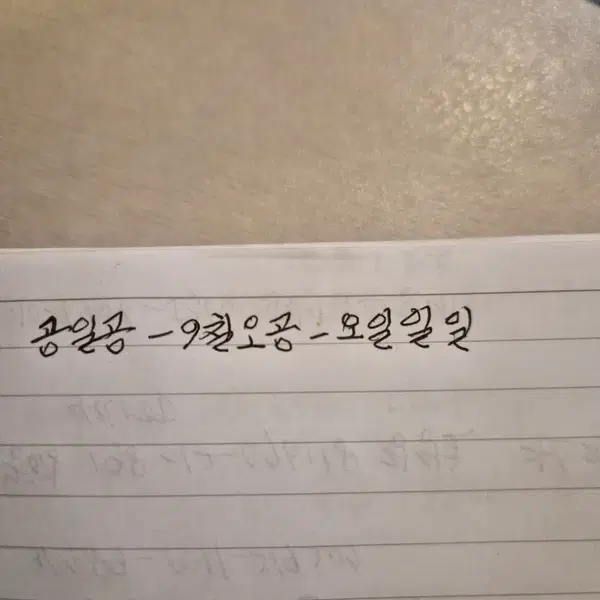 공일공-9칠오공-오일일일